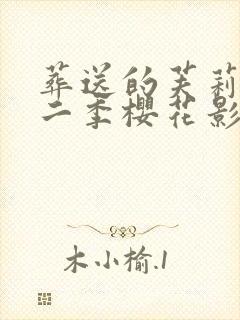 葬送的芙莉
二季樱花影
木小榆.1